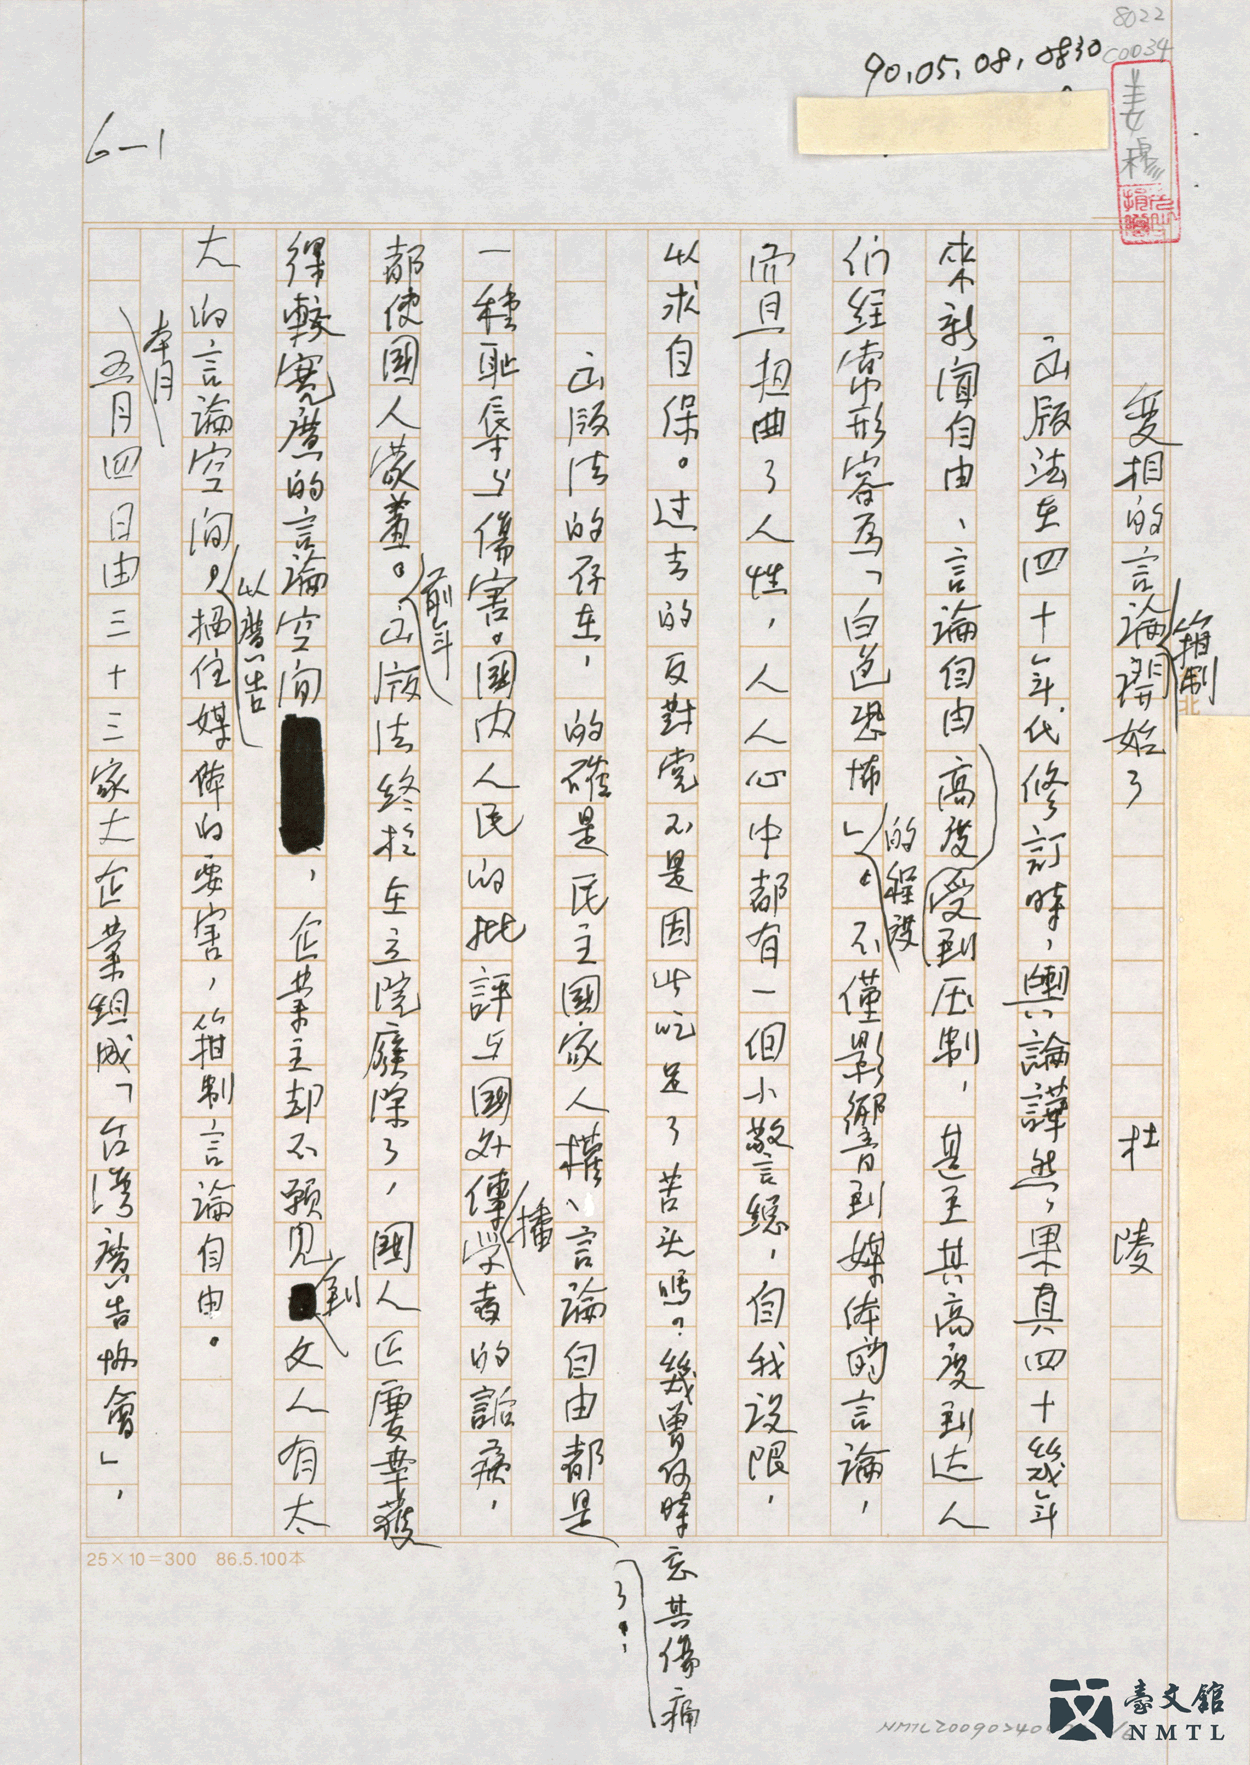 8022
C0034
90.05.08.0830
姜穆
捐贈
6-1
變相的言論箝制開始了
杜陵
出版法在四十年代修訂時，輿論譁然，果真四十幾年
來新聞自由、言論自由受到高度壓制，甚至其高度到达人
们经常形容爲「白色恐怖」的程度。不僅影響到媒体的言論，
而且扭曲了人性，人人心中都有一個小警總，自我設限，
以求自保。过去的反對党不是因此吃足了苦头嗎？幾曾何時忘其傷痛
了。
出版法的存在，的確是民主國家人權、言論自由都是
一種耻辱与傷害。國内人民的批評与國外傳播學者的詬病，
都使國人蒙羞。前年出版法終於在立院廢除了，國人正慶幸獲
得較寬廣的言論空间，企業主却不願見到文人有太
大的言論空间，以廣告掐住媒体的要害，箝制言論自由。
本月
五月四日由三十三家大企業組成「台湾廣告协會」，
25×10=300 86.5.100本
臺文館
NMTL